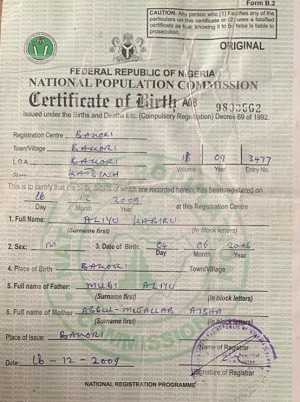 Form B.2
CAUTION: Any person who (1) Falsifies any of the
particulars on this certificate or (2) uses a falsified
certificate as true, knowing it to be false is liable to
prosecution.
ORIGINAL
FEDERAL REPUBLIC OF NIGERIA
NATIONAL POPULATION COMMISSION
Certificate of Birth A06
Issued under the Births and Deaths etc. (Compulsory Registration) Decree 69 of 1992.
Registration Centre BAKORI
Town/Village BAKORI
L.G.A. BAKORI 18 09 3477
KATSINA Volume Year Entry No.
This is to certify that the birth, details of which are recorded herein, has been registered on
16 12 2009
Day Month Year at this Registration Centre
1. Full Name: ALIYU KABIRU
(Surname first) (In block letters)
2. Sex: M 3. Date of Birth: 04 06 2006
Day Month Year
4. Place of Birth BAKORI Town/Village
5. Full name of Father: ALIYU
(Surname first) (In block letters)
6. Full name of Mother ABDUL-MUTALLAB AISHA
(Surname first) (In block letters)
Place of Issue: BAKORI
Name of Registrar
Date 16-12-2009
Signature of Registrar
NATIONAL REGISTRATION PROGRAMME